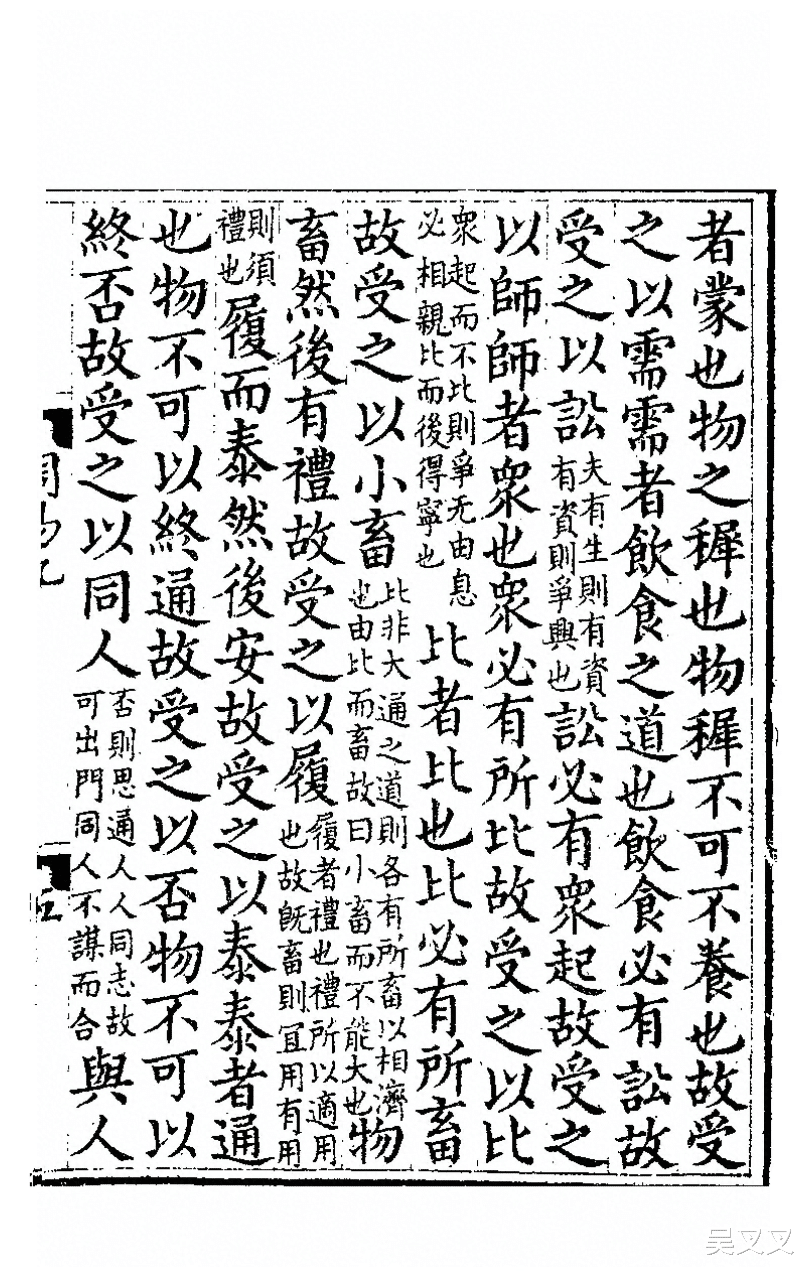 者蒙也物之穉也物穉不可不養也故受
之以需需者飲食之道也飲食必有訟故
受之以訟夫有生則有資有資則爭興也訟必有衆起故受之
以師師者衆也衆必有所比故受之以比
衆起而不比則爭无由息必相親比而後得寧也比者比也比必有所畜
故受之以小畜比非大通之道則各有所畜以相濟也由比而畜故曰小畜而不能大也物
畜然後有禮故受之以履履者禮也禮所以適用也故旣畜則宜用有用
則須禮也履而泰然後安故受之以泰泰者通
也物不可以終通故受之以否物不可以
終否故受之以同人否則思通人人同志故可出門同人不謀而合與人
吴叉叉